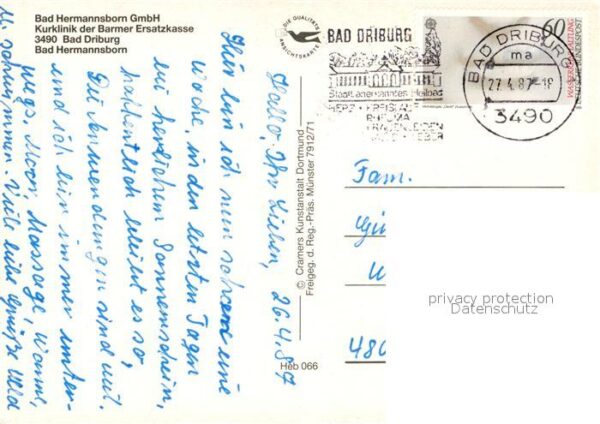 Bad Hermannsborn GmbH
Kurklinik der Barmer Ersatzkasse
3490 Bad Driburg
Bad Hermannsborn
DIE QUALITÄTS
ANSICHTSKARTE
BAD DRIBURG
Staatl. anerkanntes Heilbad
HERZ · KREISLAUF
RHEUMA
FRAUENLEIDEN
BAD DRIBURG
ma
27.4.87-18
3490
60
DEUTSCHE BUNDESPOST
© Cramers Kunstanstalt Dortmund
Freigeg. d. Reg.-Präs. Münster 7912/71
Heb 066
26.4.87
Hallo, Ihr Lieben,
Hier bin ich nun schon eine
Woche, in den letzten Tagen
bei herrlichem Sonnenschein,
hoffentlich bleibt es so,
Die Anwendungen sind gut.
und ich bin immer unter-
wegs. Moor, Massage, Wanne,
schwimmen. Viele liebe Grüße
Fam.
480
privacy protection
Datenschutz